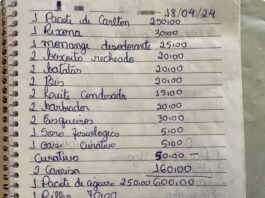 18/04/24
1 Pacote de Carlton 250,00
1 Rizena 30,00
1 monange desodorante 25,00
2 biscoito recheado 20,00
2 batatão 20,00
2 Bis 20,00
2 Leite Condensado 15,00
2 barbeador 20,00
2 Broqueiros 30,00
1 Soro fisiologico 5,00
1 curativo 5,00
Curativo 50,00
2 Camisa 160,00
1 Pacote de cigarro 250,00 600,00
70,00